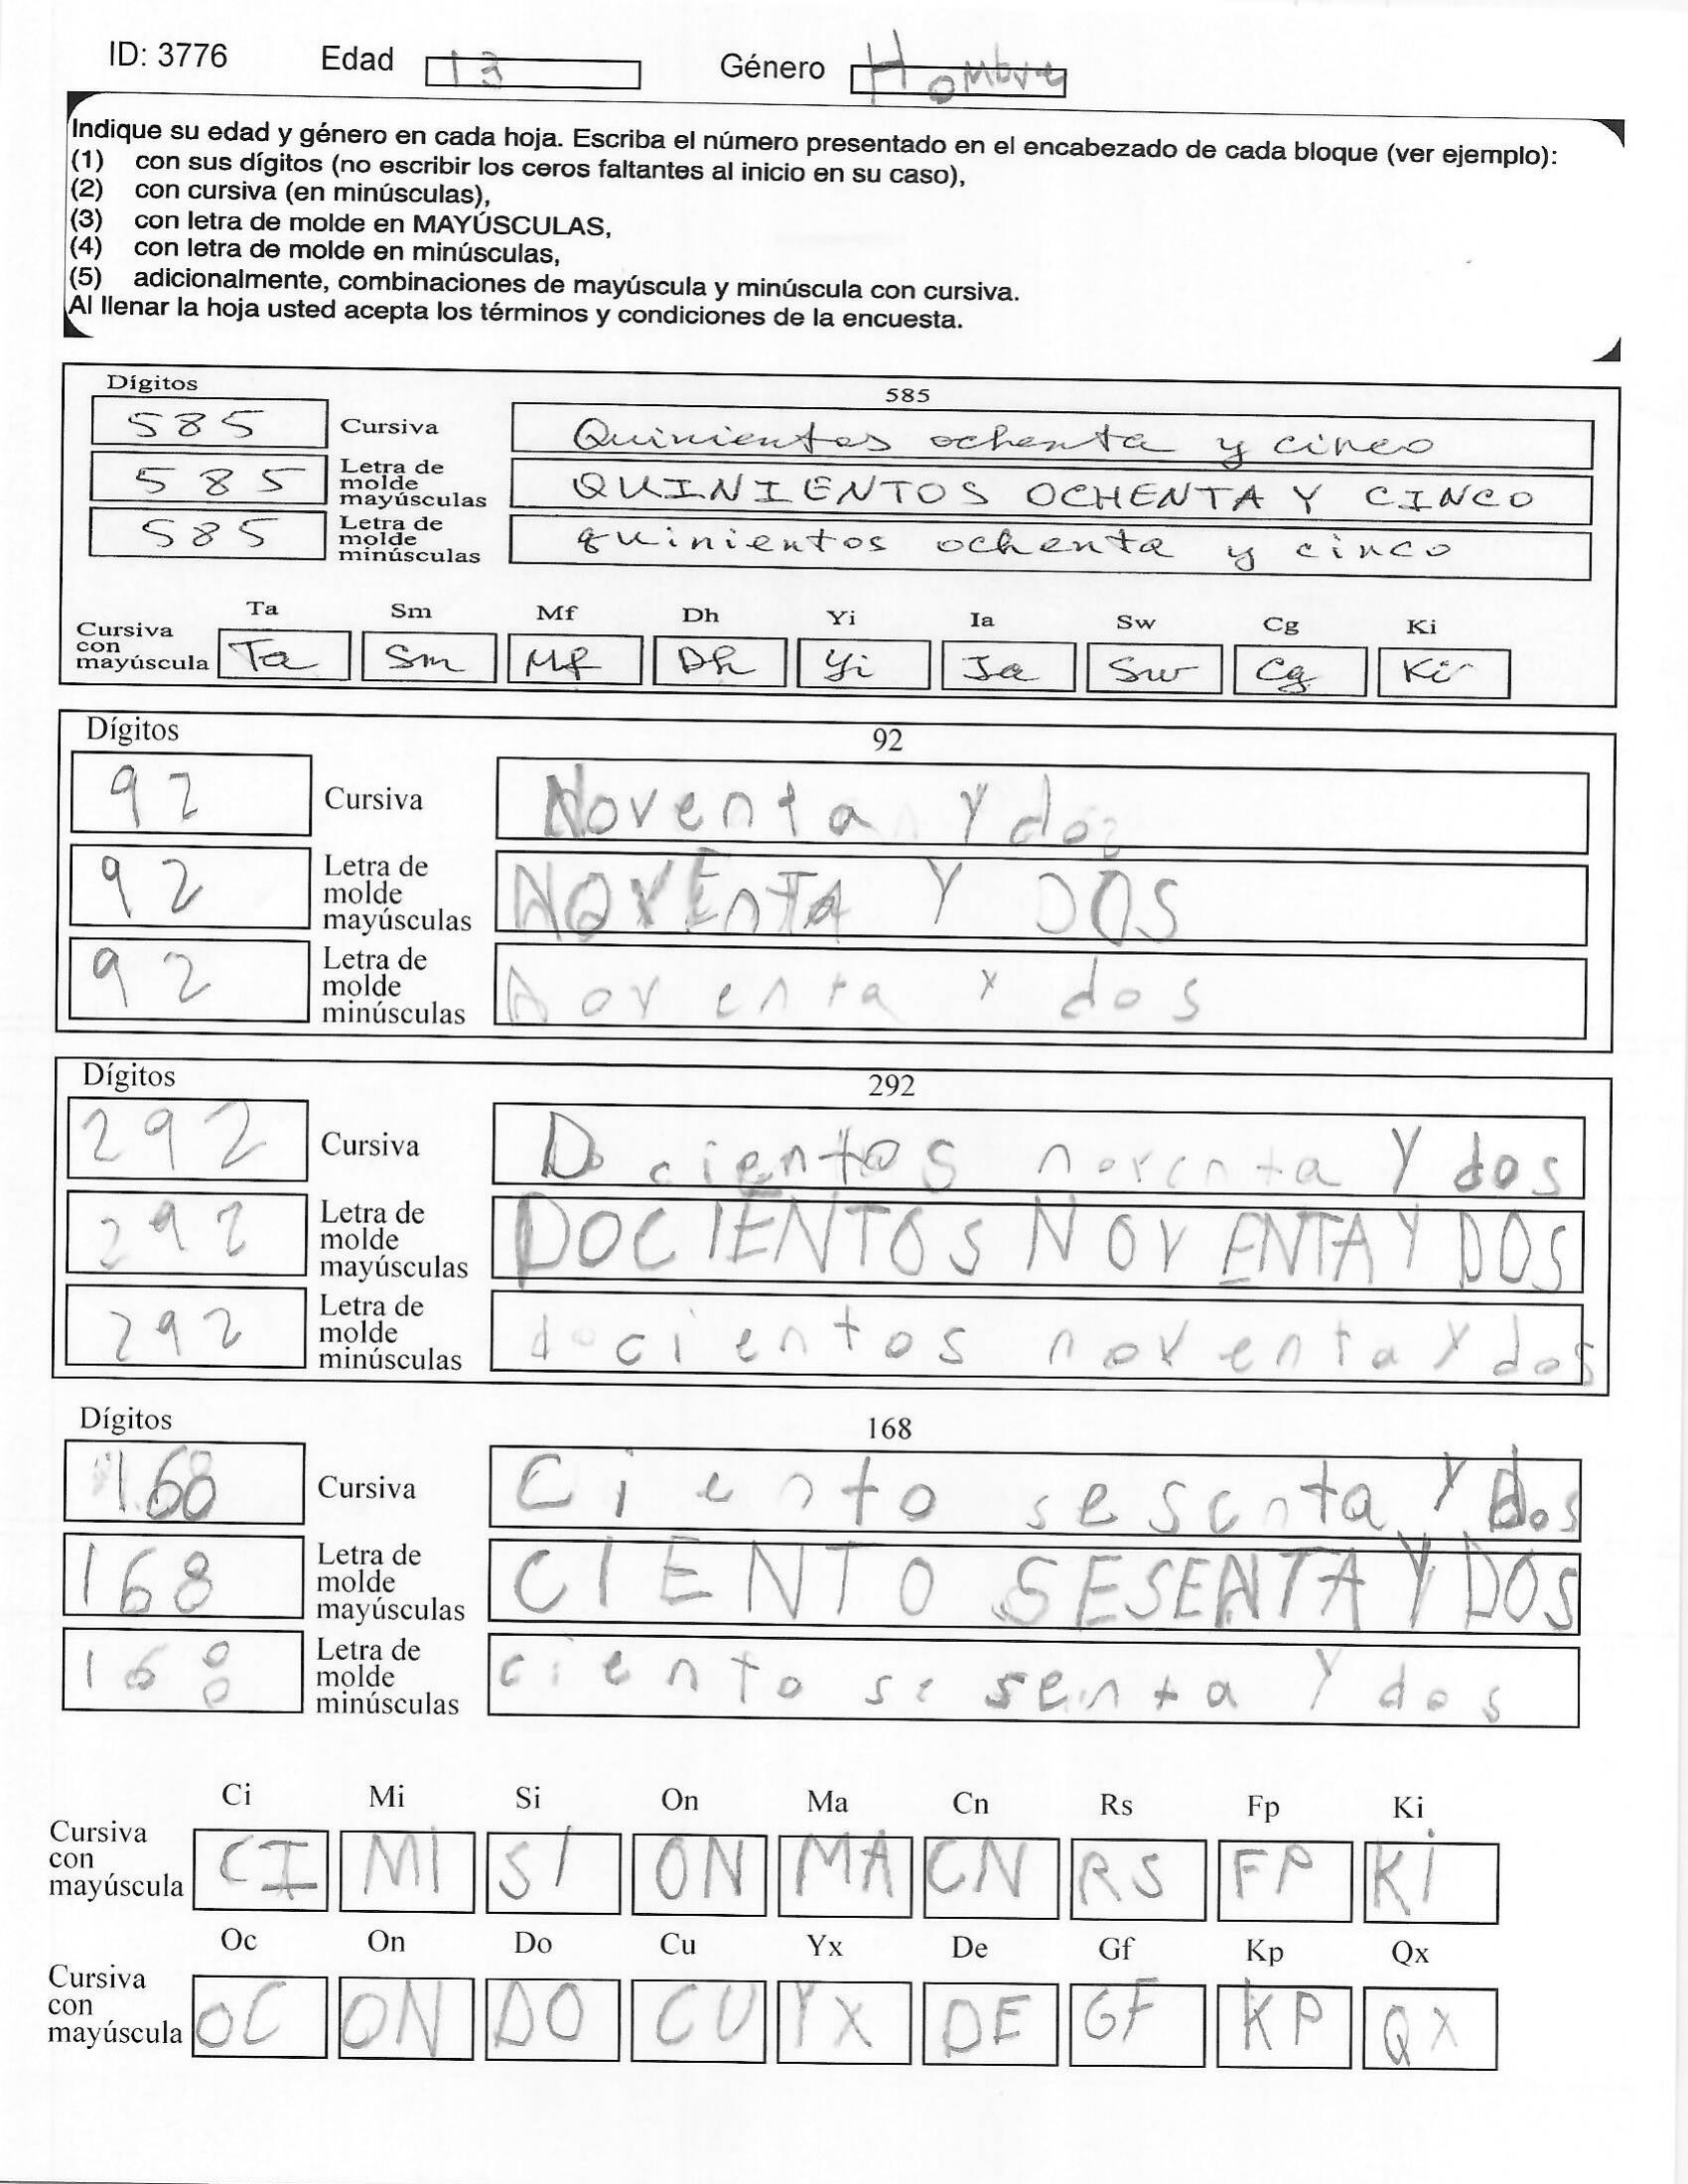 ID: 3776 Edad 13 Género Hombre
Indique su edad y género en cada hoja. Escriba el número presentado en el encabezado de cada bloque (ver ejemplo):
(1) con sus dígitos (no escribir los ceros faltantes al inicio en su caso),
(2) con cursiva (en minúsculas),
(3) con letra de molde en MAYÚSCULAS,
(4) con letra de molde en minúsculas,
(5) adicionalmente, combinaciones de mayúscula y minúscula con cursiva.
Al llenar la hoja usted acepta los términos y condiciones de la encuesta.
Dígitos 585
585 Cursiva Quinientos ochenta y cinco
585 Letra de molde mayúsculas QUINIENTOS OCHENTA Y CINCO
585 Letra de molde minúsculas quinientos ochenta y cinco
Ta Sm Mf Dh Yi Ia Sw Cg Ki
Cursiva con mayúscula Ta Sm Mf Dh Yi Ia Sw Cg Ki
Dígitos 92
92 Cursiva Noventa y dos
92 Letra de molde mayúsculas NOVEnTA Y DOS
92 Letra de molde minúsculas noventa y dos
Dígitos 292
292 Cursiva Docientos noventa Y dos
292 Letra de molde mayúsculas DOCIENTOS NOVENTA Y DOS
292 Letra de molde minúsculas docientos noventa y dos
Dígitos 168
168 Cursiva Ciento sesenta Y dos
168 Letra de molde mayúsculas CIENTO SESENTA Y DOS
168 Letra de molde minúsculas ciento sesenta Y dos
Ci Mi Si On Ma Cn Rs Fp Ki
Cursiva con mayúscula CI Mi SI ON MA CN RS FP Ki
Oc On Do Cu Yx De Gf Kp Qx
Cursiva con mayúscula OC ON DO CU YX DE GF KP QX